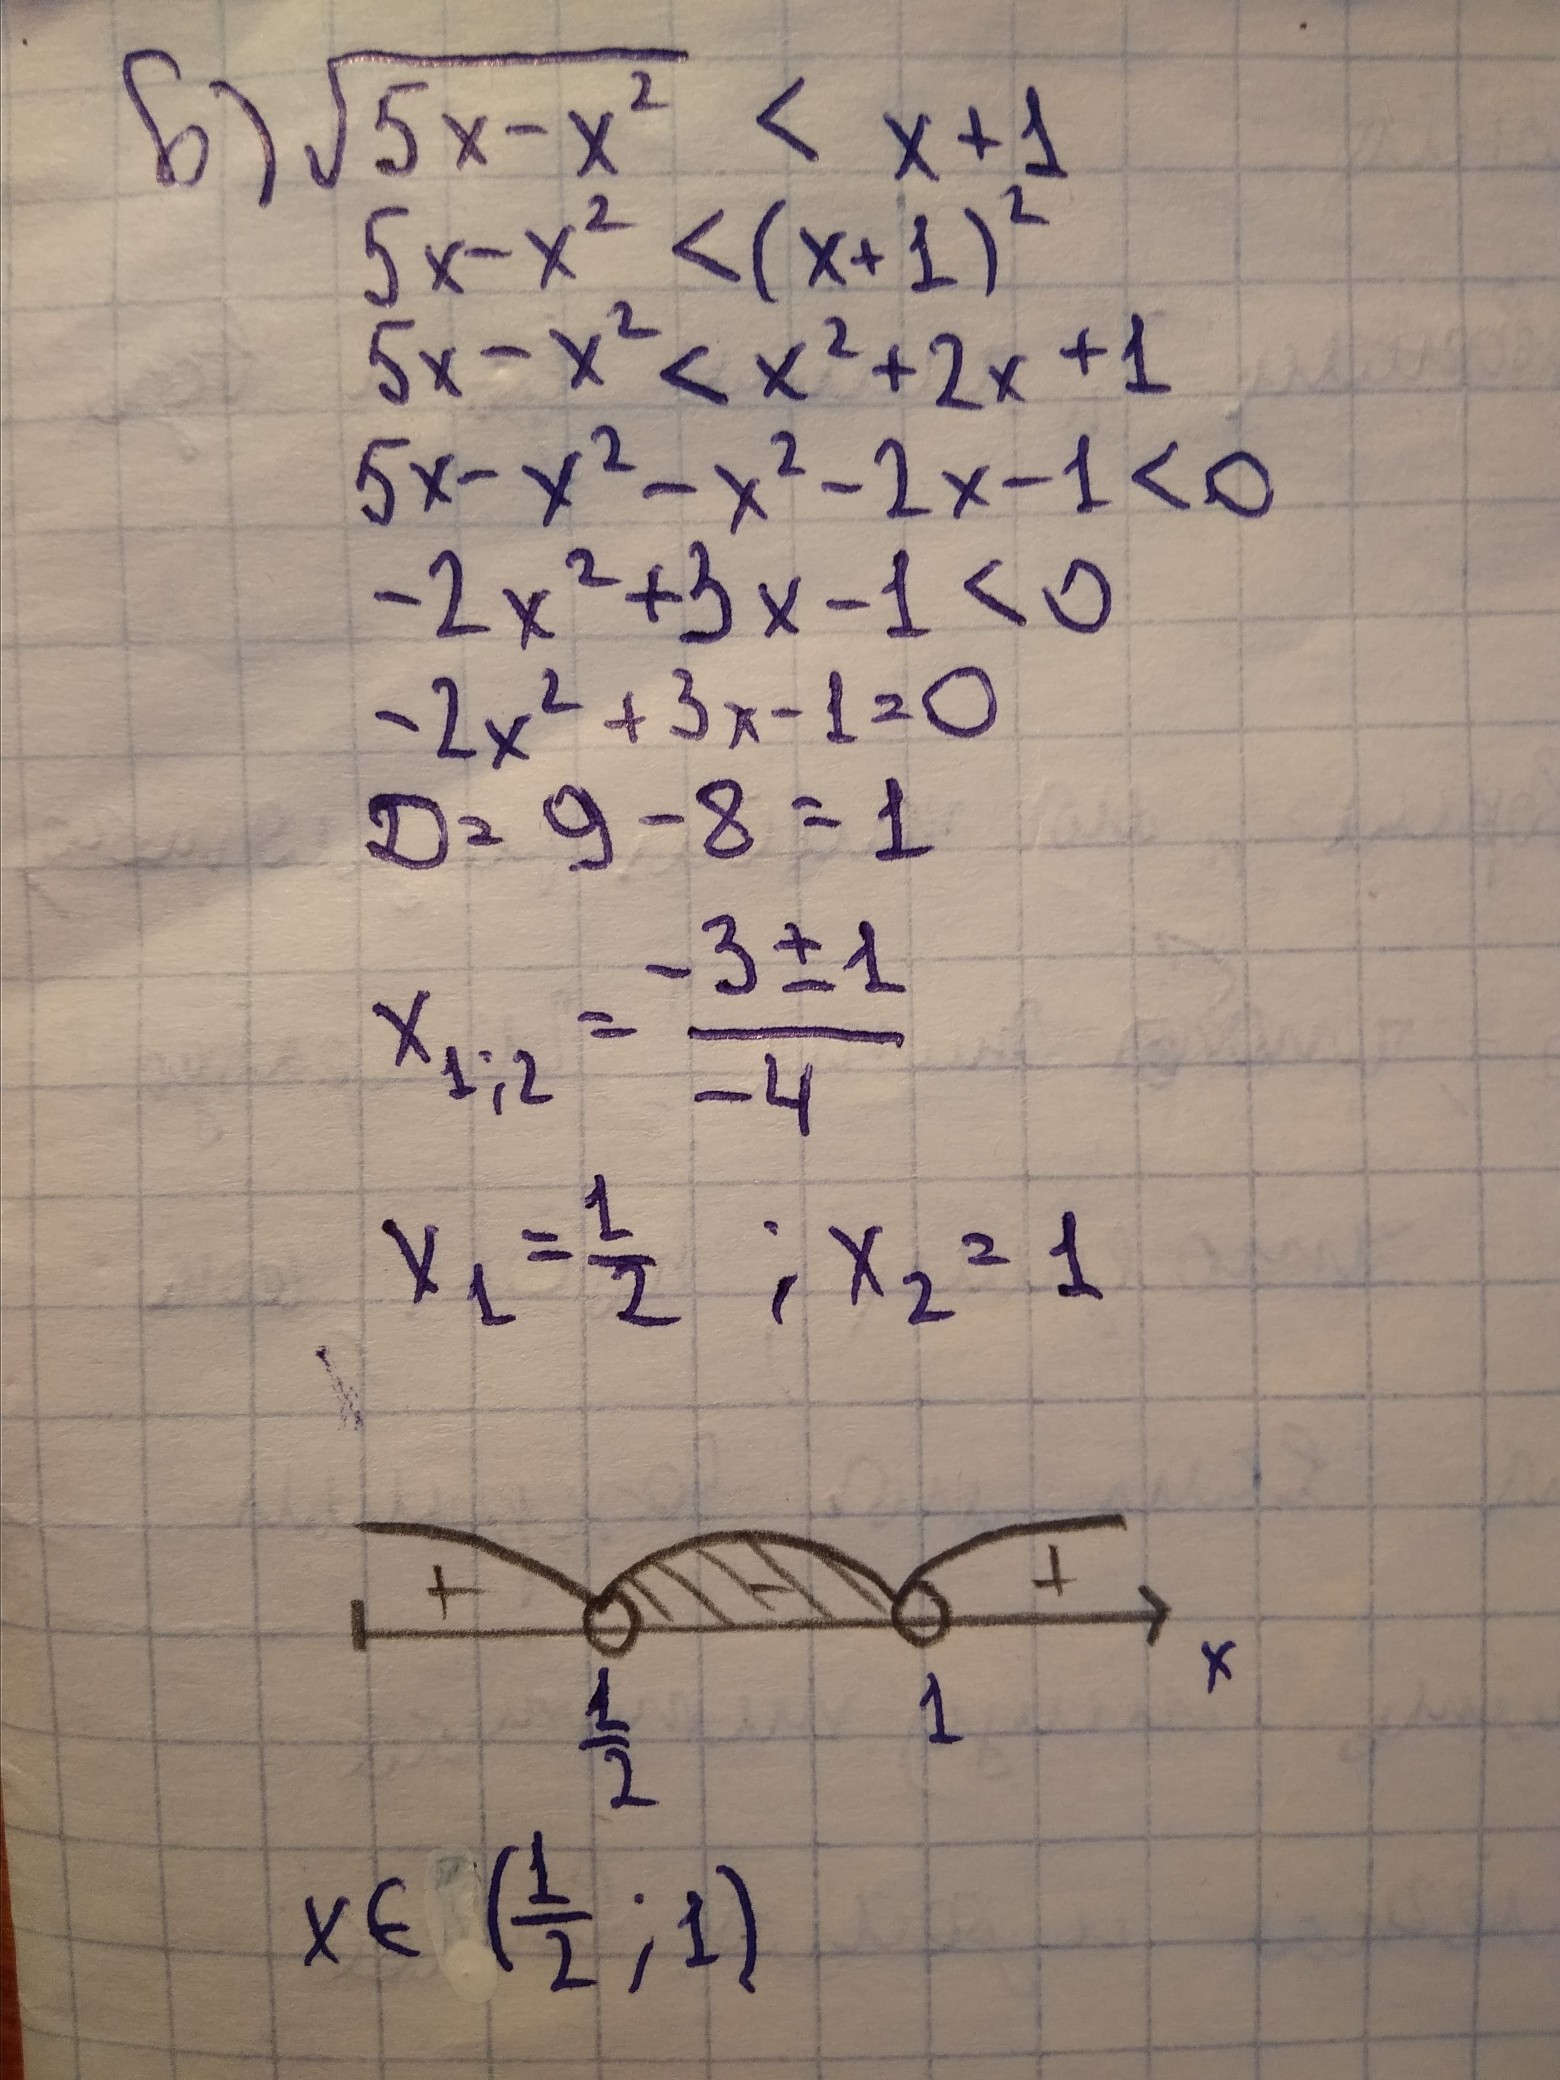 б) √5x-x² < x+1
5x-x² <(x+1)²
5x-x² < x²+2x+1
5x-x²-x²-2x-1<0
-2x²+3x-1<0
-2x²+3x-1=0
D= 9-8=1
x₁;₂ = (-3±1)/(-4)
x₁ = 1/2 ; x₂ = 1
+ - +
1/2 1 x
x∈ (1/2 ; 1)